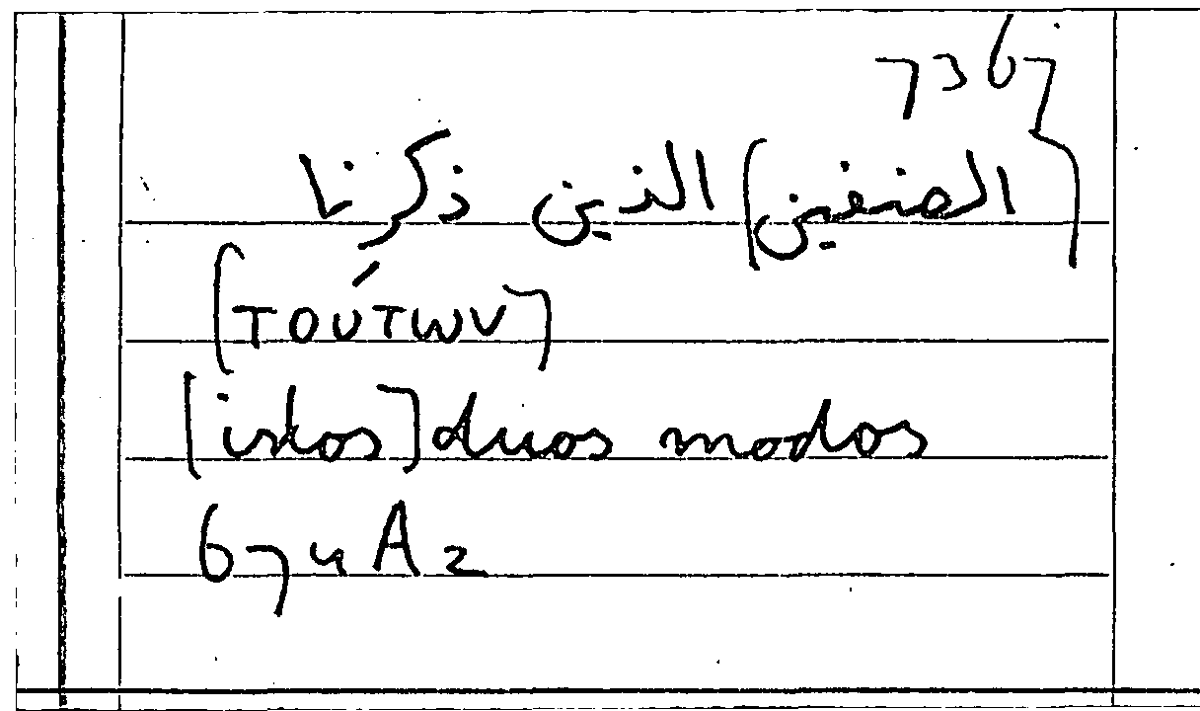 7367
[الصنفين] الذين ذكرنا
[τούτων]
[istos] duos modos
674A2